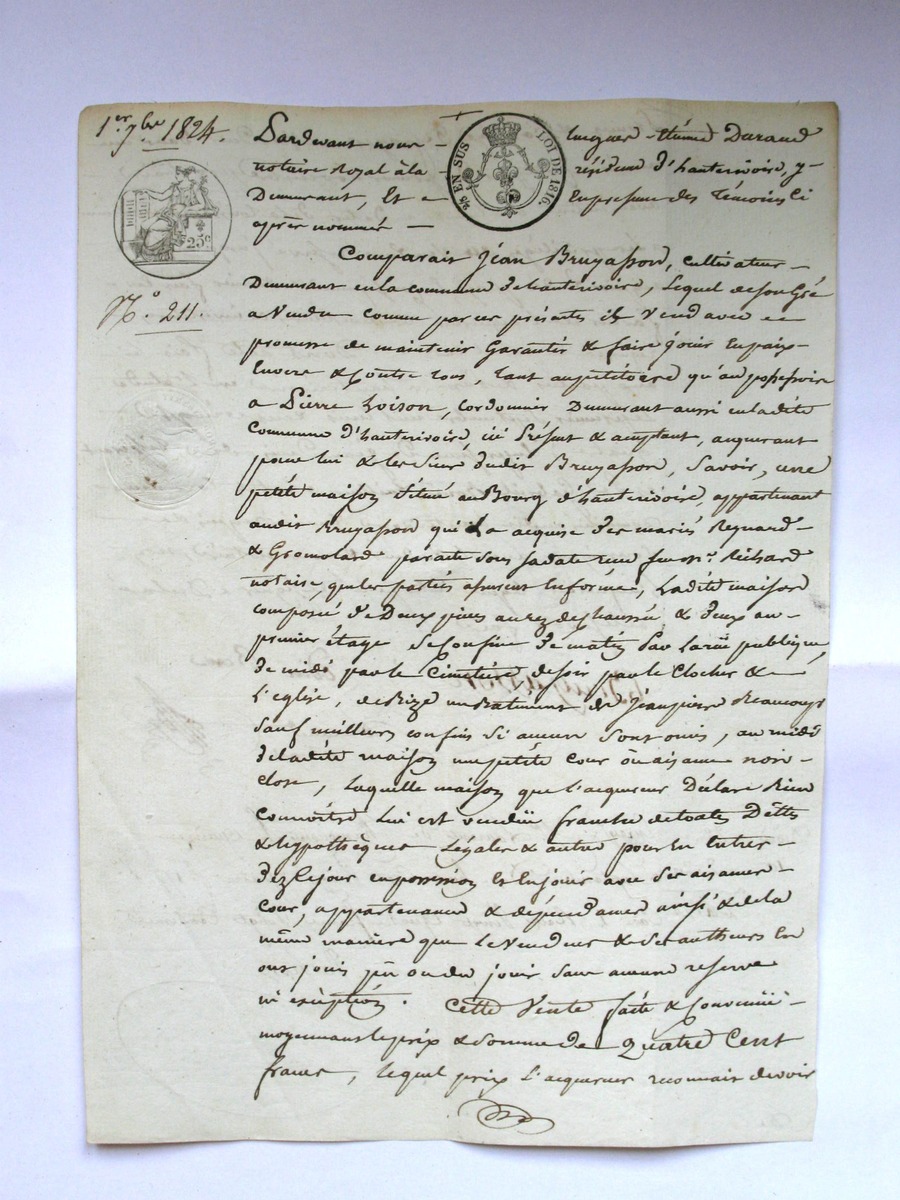 1er 7bre 1824.
Pardevant nous Durand
notaire Royal à la résidence d'hauterivoire, y
Demeurant, Et En presence des Témoins Ci
après nommés
EN SUS
LOI DE 1816
25c
Comparait Jean Bruyasson, cultivateur
Demeurant en la commune d'hauterivoire, Lequel de son Gré
a Vendu comme par ces présentes il Vend avec
promesse de maintenir Garantir & faire jouir En paix
Envers & Contre tous, tant au petitoire qu'au possessoire
N° 211.
a Pierre Loison, Cordonnier Demeurant aussi en ladite
Commune d'hauterivoire, ici Présent & acceptant, acquerant
pour lui & les Siens dudit Bruyasson, Savoir, une
petite maison Située au Bourg d'hauterivoire, appartenant
audit Bruyasson qui L'a acquise des mariés Reynard
& Gromolard par acte Sous Sa date reçu feu Mr. Richard
notaire, que les parties assurent En forme, Ladite maison
composée de Deux pièces au rez de chaussée, & deux au
premier étage Se Confine De matin Par La rüe publique,
De midi par le Cimetière de Soir par le Clocher &
L'eglise, de Bize un Batiment de Jean pierre
Sauf meilleurs confins Si aucuns Sont omis, au midi
de ladite maison une petite Cour ou aisance non
close, Laquelle maison que l'acquereur Déclare Bien
Connoitre Lui est vendüe franche de toutes Dettes
& hypothèques Légales & autres pour En Entrer
dez Ce jour en possession Et En jouir avec Ses aisances
Cour, appartenances & dépendances ainsi & de la
même manière que Le Vendeur & Ses autheurs En
ont joui pû ou dû jouir Sans aucune reserve
ni exception. Cette Vente faite & Convenüe
moyennant le prix & Somme de Quatre Cent
francs, lequel prix L'acquereur reconnait devoir